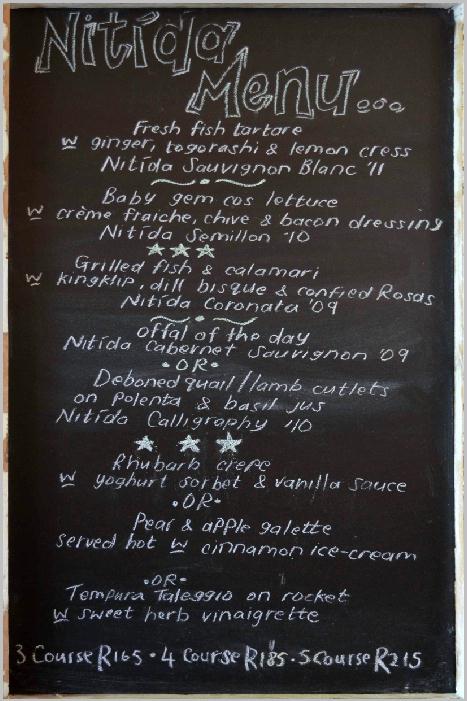 Nitída
Menu...
Fresh fish tartare
w ginger, togorashi & lemon cress
Nitída Sauvignon Blanc '11
Baby gem cos lettuce
w crème fraiche, chive & bacon dressing
Nitída Semillon '10
Grilled fish & calamari
w kingklip, dill bisque & confied Rosas
Nitída Coronata '09
Offal of the day
Nitída Cabernet Sauvignon '09
·OR·
Deboned quail/lamb cutlets
on Polenta & basil jus
Nitída Calligraphy '10
Rhubarb crepe
w yoghurt sorbet & vanilla sauce
·OR·
Pear & apple galette
served hot w cinnamon ice-cream
·OR·
Tempura Taleggio on rocket
w sweet herb vinaigrette
3 Course R165 · 4 Course R185 · 5 Course R215